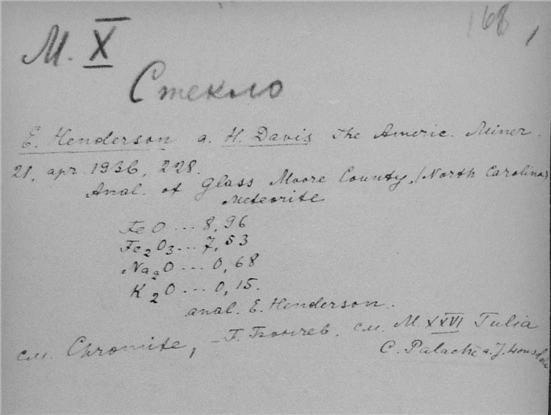 168
М. X
Стекло
E. Henderson a. H. Davis The Americ. Miner.
21, apr. 1936, 228.
Anal. of Glass Moore County, (North Carolina)
Meteorite
FeO ... 8,96
Fe₂O₃ ... 7,53
Na₂O ... 0,68
K₂O ... 0,15.
anal. E. Henderson.
см. Chromite, – см. М XXVI Tulia
C. Palache a. J.